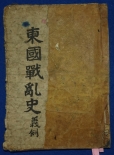 東國戰亂史